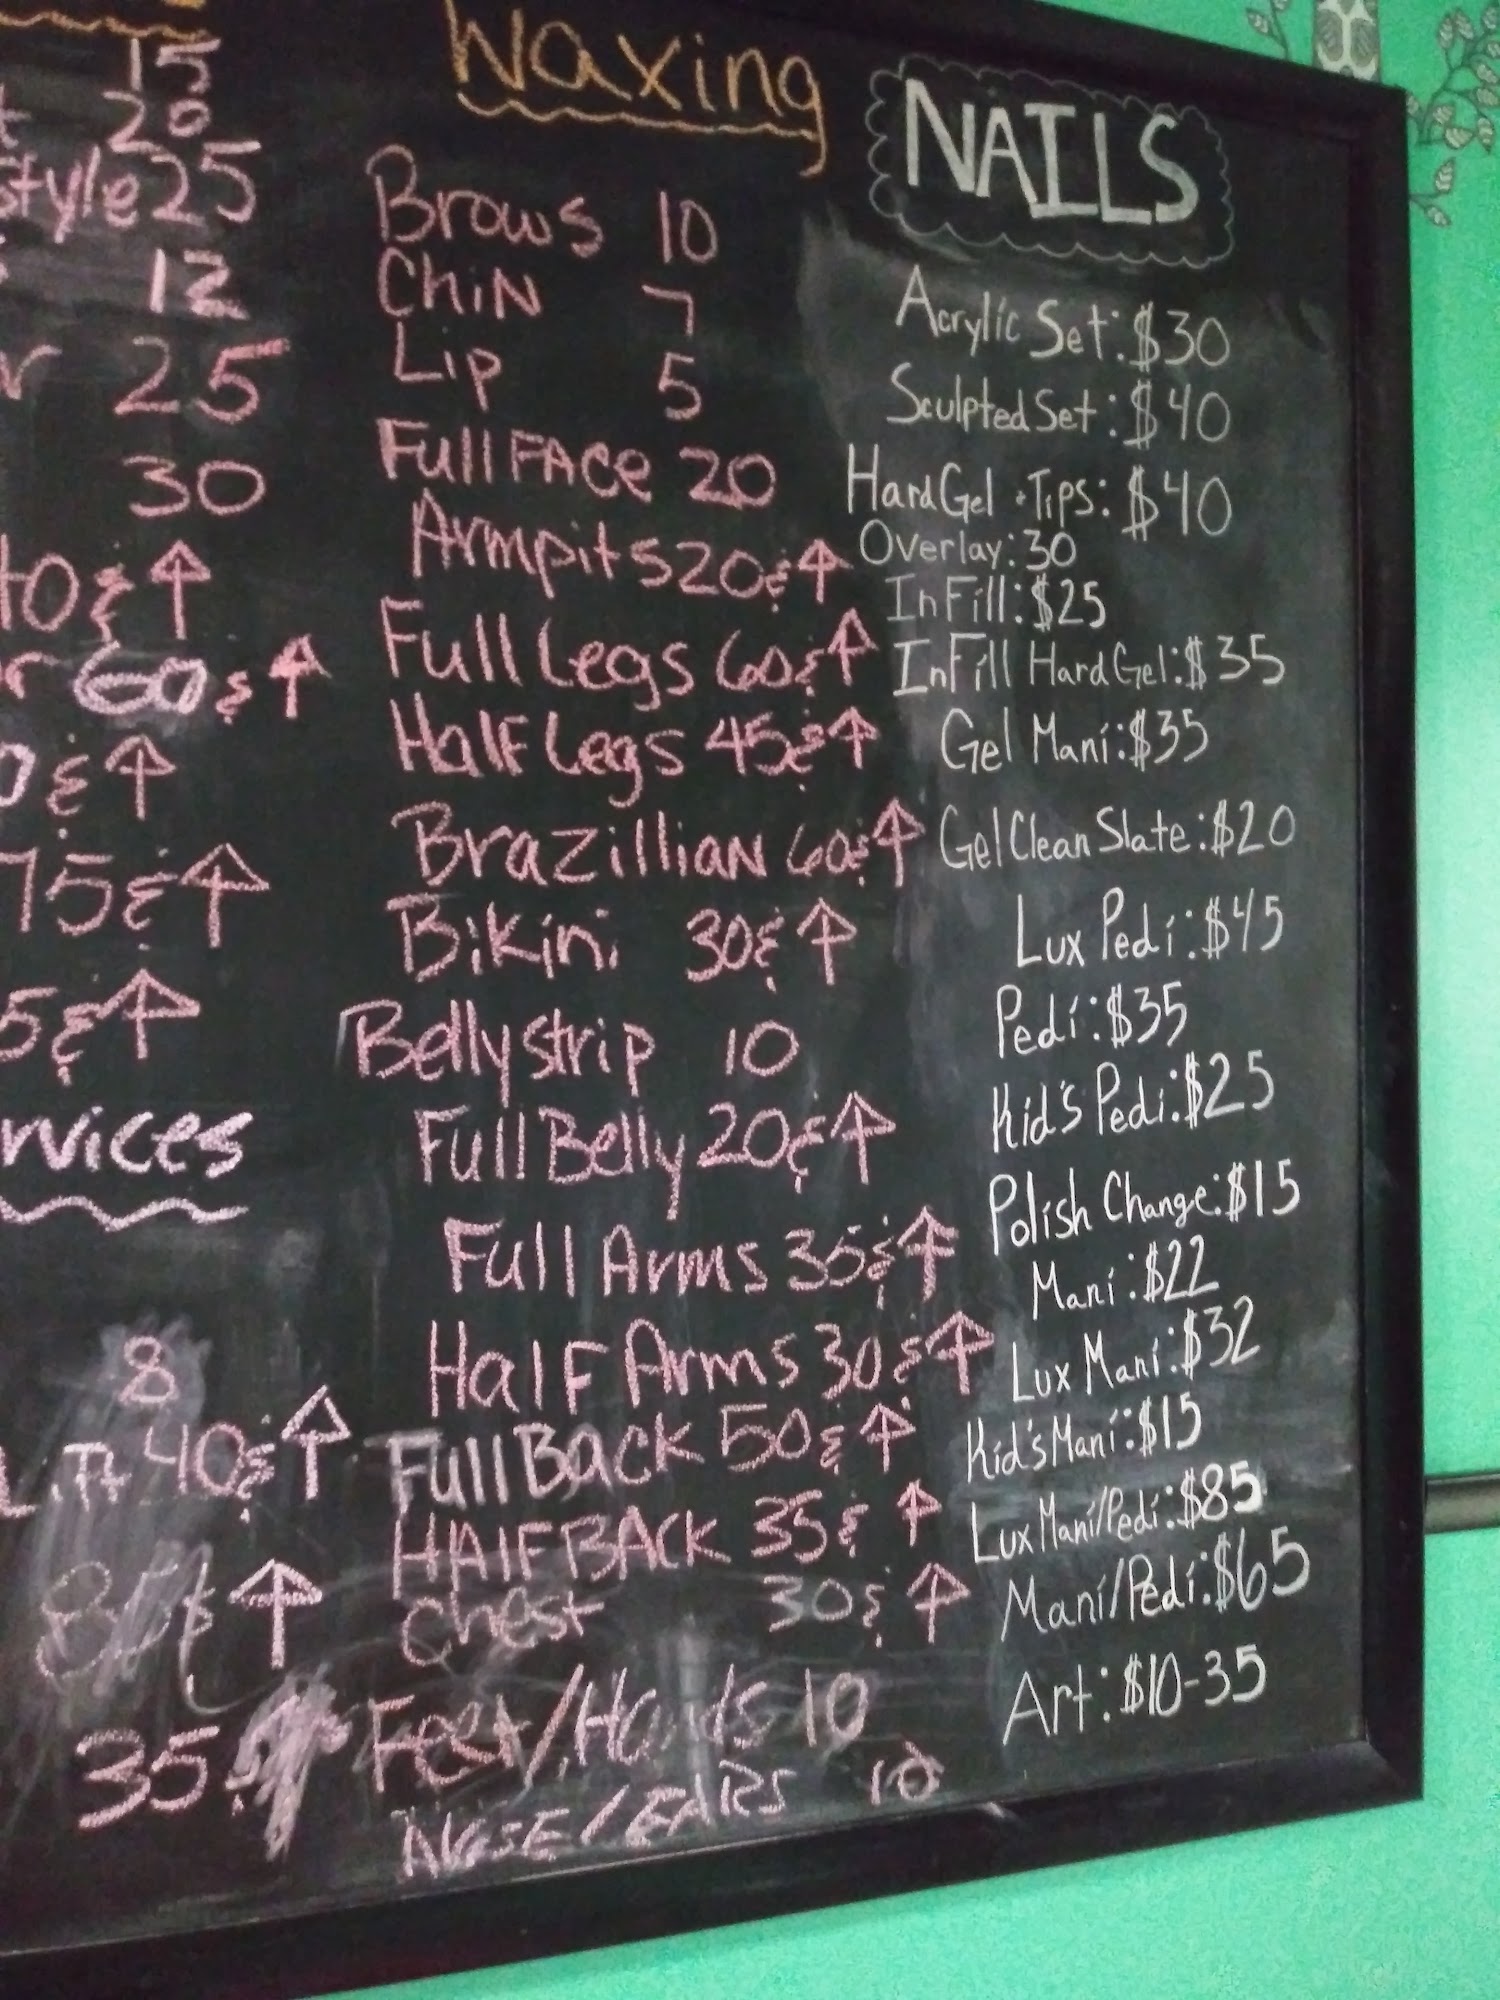 15
20
style 25
12
25
30
40 & ↑
60 & ↑
0 & ↑
75 & ↑
5 & ↑
rvices
8
40 & ↑
↑
35
Waxing
Brows 10
ChiN 7
Lip 5
Full FACe 20
Armpits 20 & ↑
Full Legs 60 & ↑
HalF Legs 45 & ↑
BraZilliaN 60 & ↑
Bikini 30 & ↑
Belly strip 10
Full Belly 20 & ↑
Full Arms 35 & ↑
HalF Arms 30 & ↑
Full BaCK 50 & ↑
HAlF BACK 35 & ↑
Chest 30 & ↑
Feet/Hands 10
NOSE/EARS 10
NAILS
Acrylic Set: $30
Sculpted Set: $40
Hard Gel + Tips: $40
Overlay: 30
InFill: $25
InFill Hard Gel: $35
Gel Mani: $35
Gel Clean Slate: $20
Lux Pedi: $45
Pedi: $35
Kid's Pedi: $25
Polish Change: $15
Mani: $22
Lux Mani: $32
Kid's Mani: $15
Lux Mani/Pedi: $85
Mani/Pedi: $65
Art: $10-35